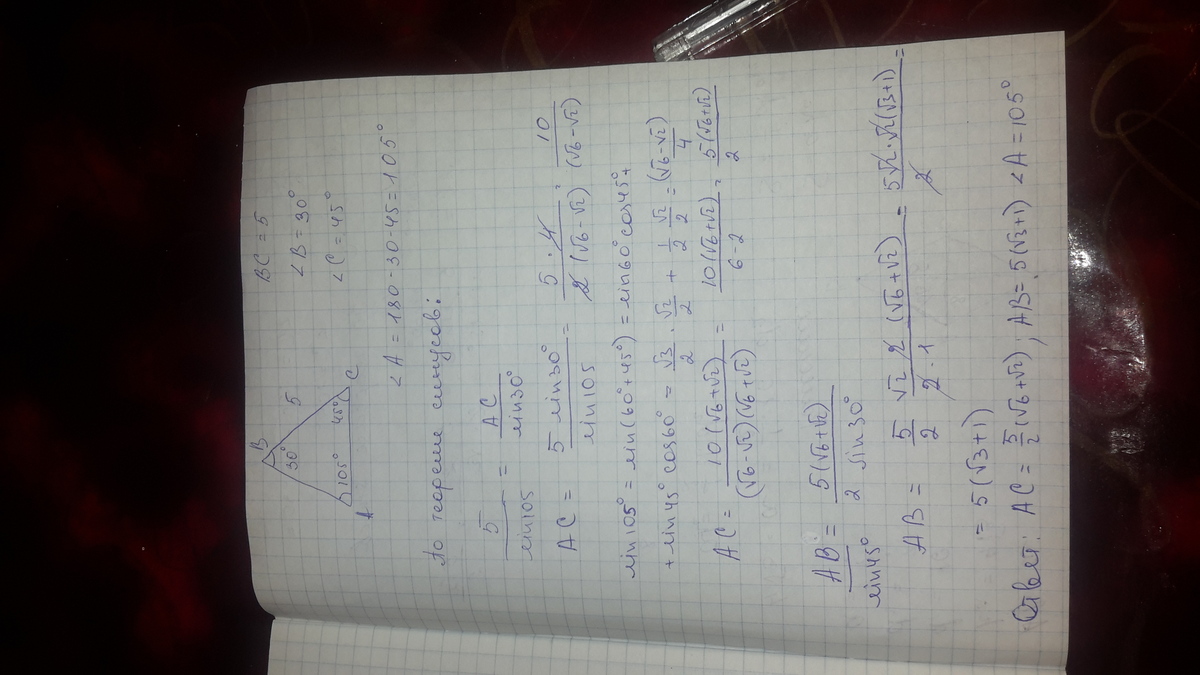 B
30°
5
105°
45°
A
C
BC = 5
∠B = 30°
∠C = 45°
∠A = 180-30-45 = 105°
По теореме синусов:
5/sin105 = AC/sin30°
AC = 5·sin30°/sin105 = 5·4/2(√6-√2) = 10/(√6-√2)
sin105° = sin(60°+45°) = sin60°cos45°+
+ sin45° cos60° = √3/2 · √2/2 + 1/2 · √2/2 = (√6-√2)/4
AC = 10(√6+√2)/(√6-√2)(√6+√2) = 10(√6+√2)/6-2 = 5(√6+√2)/2
AB/sin45° = 5(√6+√2)/2 sin30°
AB = 5/2 √2·2(√6+√2)/2·1 = 5√2·√2(√3+1)/2 =
= 5(√3+1)
Ответ: AC = 5/2(√6+√2); AB = 5(√3+1) ∠A = 105°